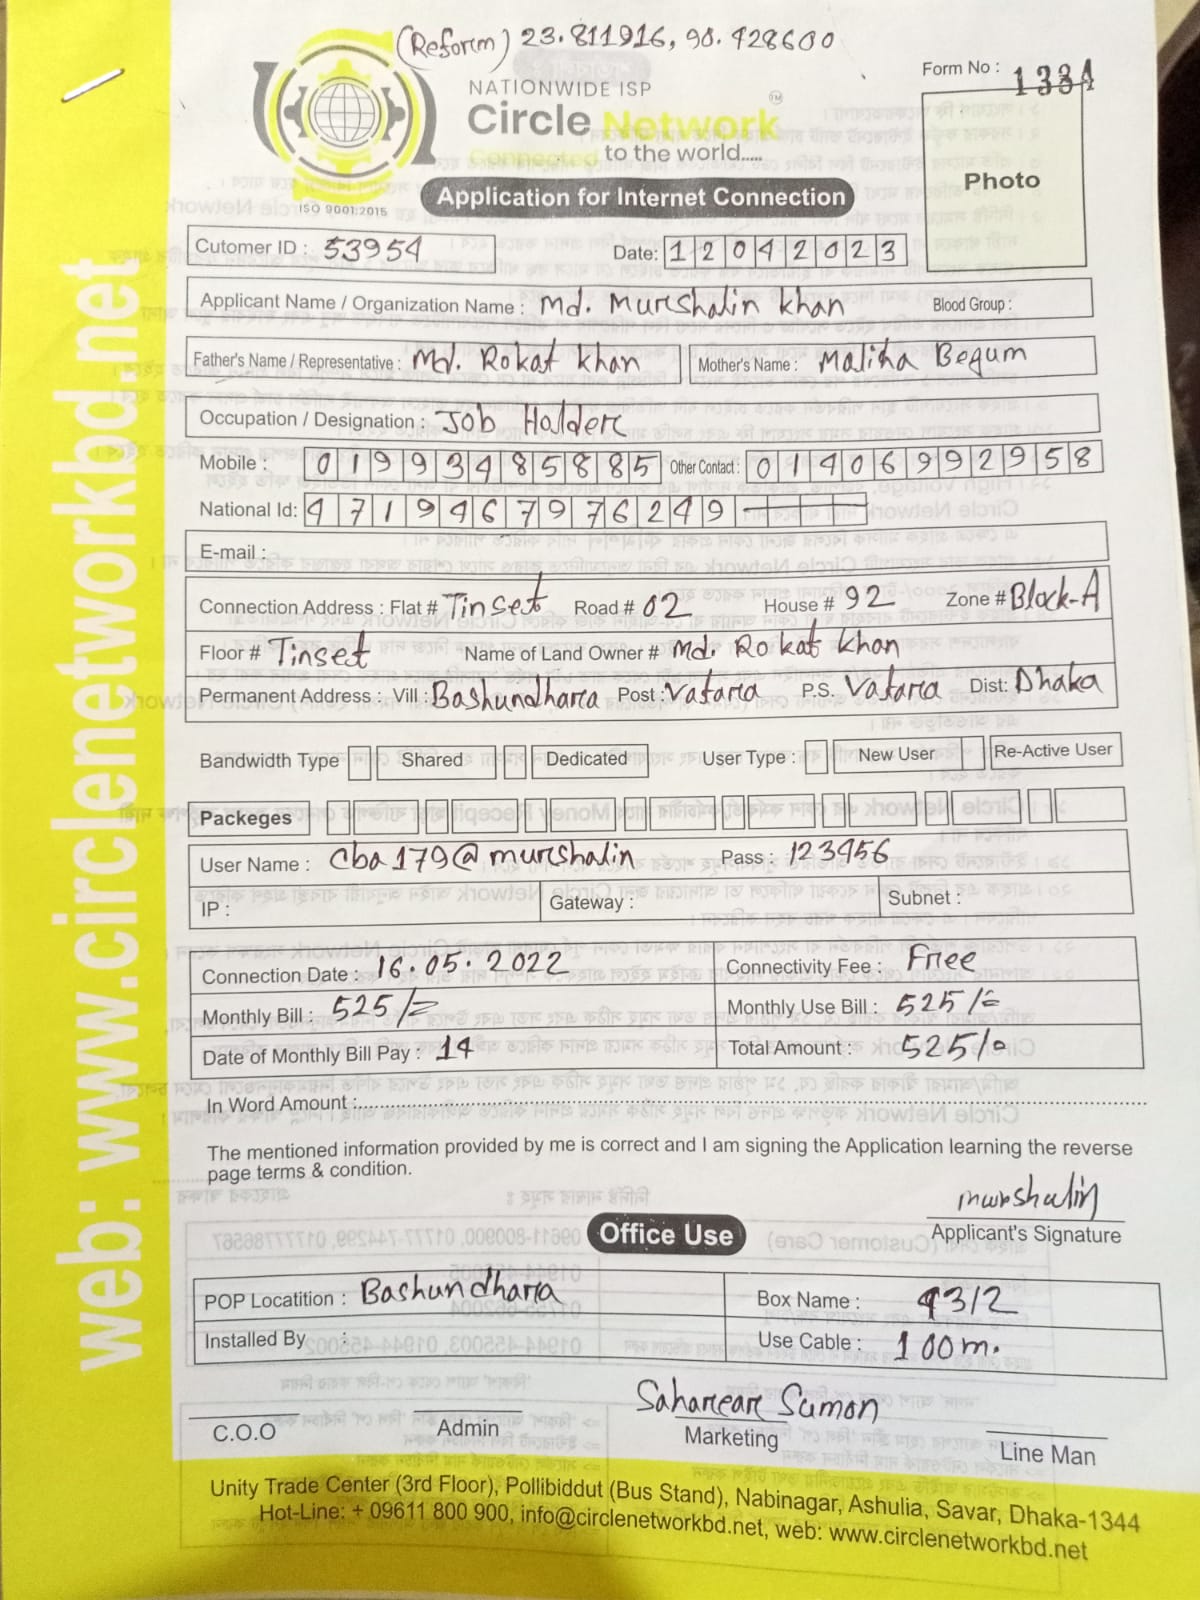 (Reform) 23.811916, 90.428600
NATIONWIDE ISP
Circle Network TM
Connected to the world.....
ISO 9001:2015
Form No : 1334
Photo
Application for Internet Connection
Cutomer ID : 53954 Date: 12042023
Applicant Name / Organization Name : Md. Murshalin khan Blood Group :
Father's Name / Representative : Md. Rokat khan Mother's Name : Maliha Begum
Occupation / Designation : Job Holder
Mobile : 01993485885 Other Contact : 01406992958
National Id: 4719467976249
E-mail :
Connection Address : Flat # Tinset Road # 02 House # 92 Zone # Block-A
Floor # Tinset Name of Land Owner # Md. Rokat khan
Permanent Address : Vill : Bashundhara Post : Vatara P.S. Vatara Dist: Dhaka
Bandwidth Type Shared Dedicated User Type : New User Re-Active User
Packeges
User Name : cba179@murshalin Pass : 123456
IP : Gateway : Subnet :
Connection Date : 16.05.2022 Connectivity Fee : Free
Monthly Bill : 525/= Monthly Use Bill : 525/=
Date of Monthly Bill Pay : 14 Total Amount : 525/=
In Word Amount :
The mentioned information provided by me is correct and I am signing the Application learning the reverse
page terms & condition.
murshalin
Applicant's Signature
Office Use
POP Locatition : Bashundhara Box Name : 4312
Installed By : Use Cable : 100m.
Saharear Sumon
C.O.O Admin Marketing Line Man
Unity Trade Center (3rd Floor), Pollibiddut (Bus Stand), Nabinagar, Ashulia, Savar, Dhaka-1344
Hot-Line: + 09611 800 900, info@circlenetworkbd.net, web: www.circlenetworkbd.net
web: www.circlenetworkbd.net